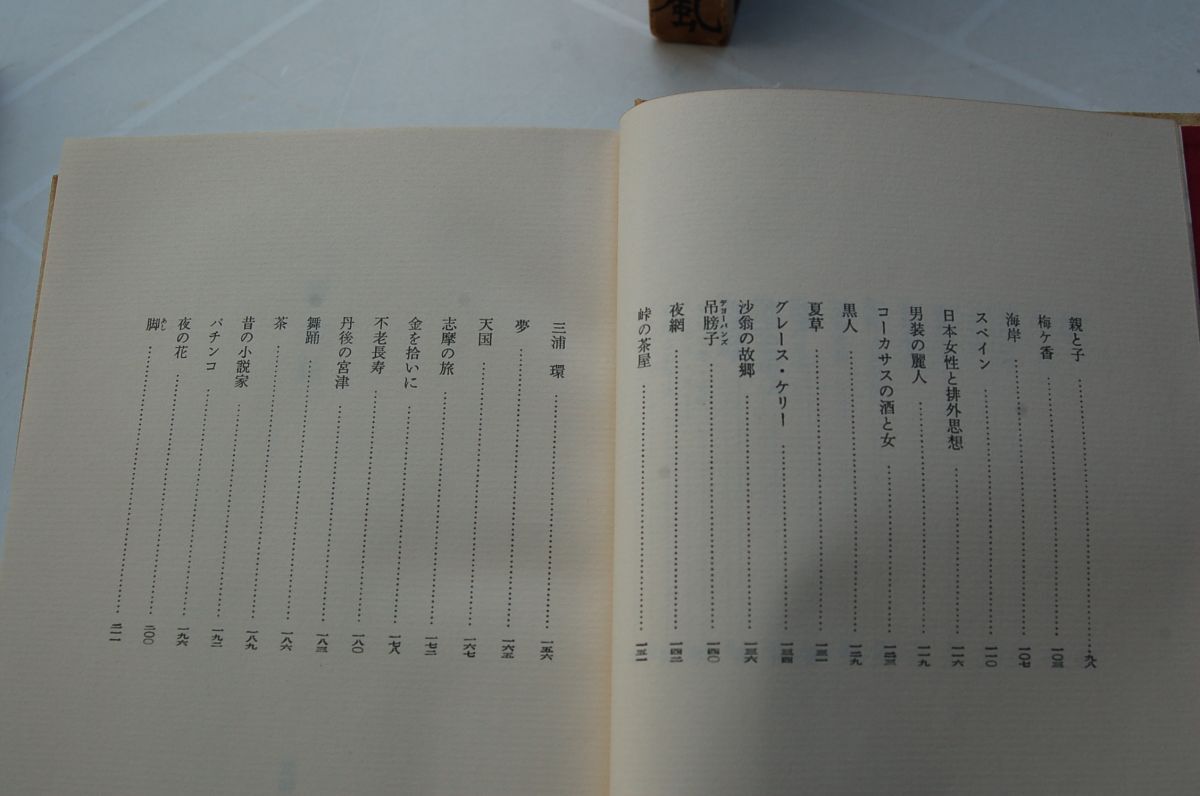 親と子……九八
梅ヶ香……一〇三
海岸……一〇七
スペイン……一一〇
日本女性と排外思想……一一六
男装の麗人……一一九
コーカサスの酒と女……一二三
黒人……一二九
夏草……一三一
グレース・ケリー……一三四
沙翁の故郷……一三六
吊膀子……一四〇
夜網……一四二
峠の茶屋……一五一
三浦 環……一五六
夢……一六五
天国……一六七
志摩の旅……一七二
金を拾いに……一七八
不老長寿……一八〇
丹後の宮津……一八三
舞踊……一八六
茶……一八九
昔の小説家……一九二
パチンコ……一九六
夜の花……二〇〇
脚……二一一
あし